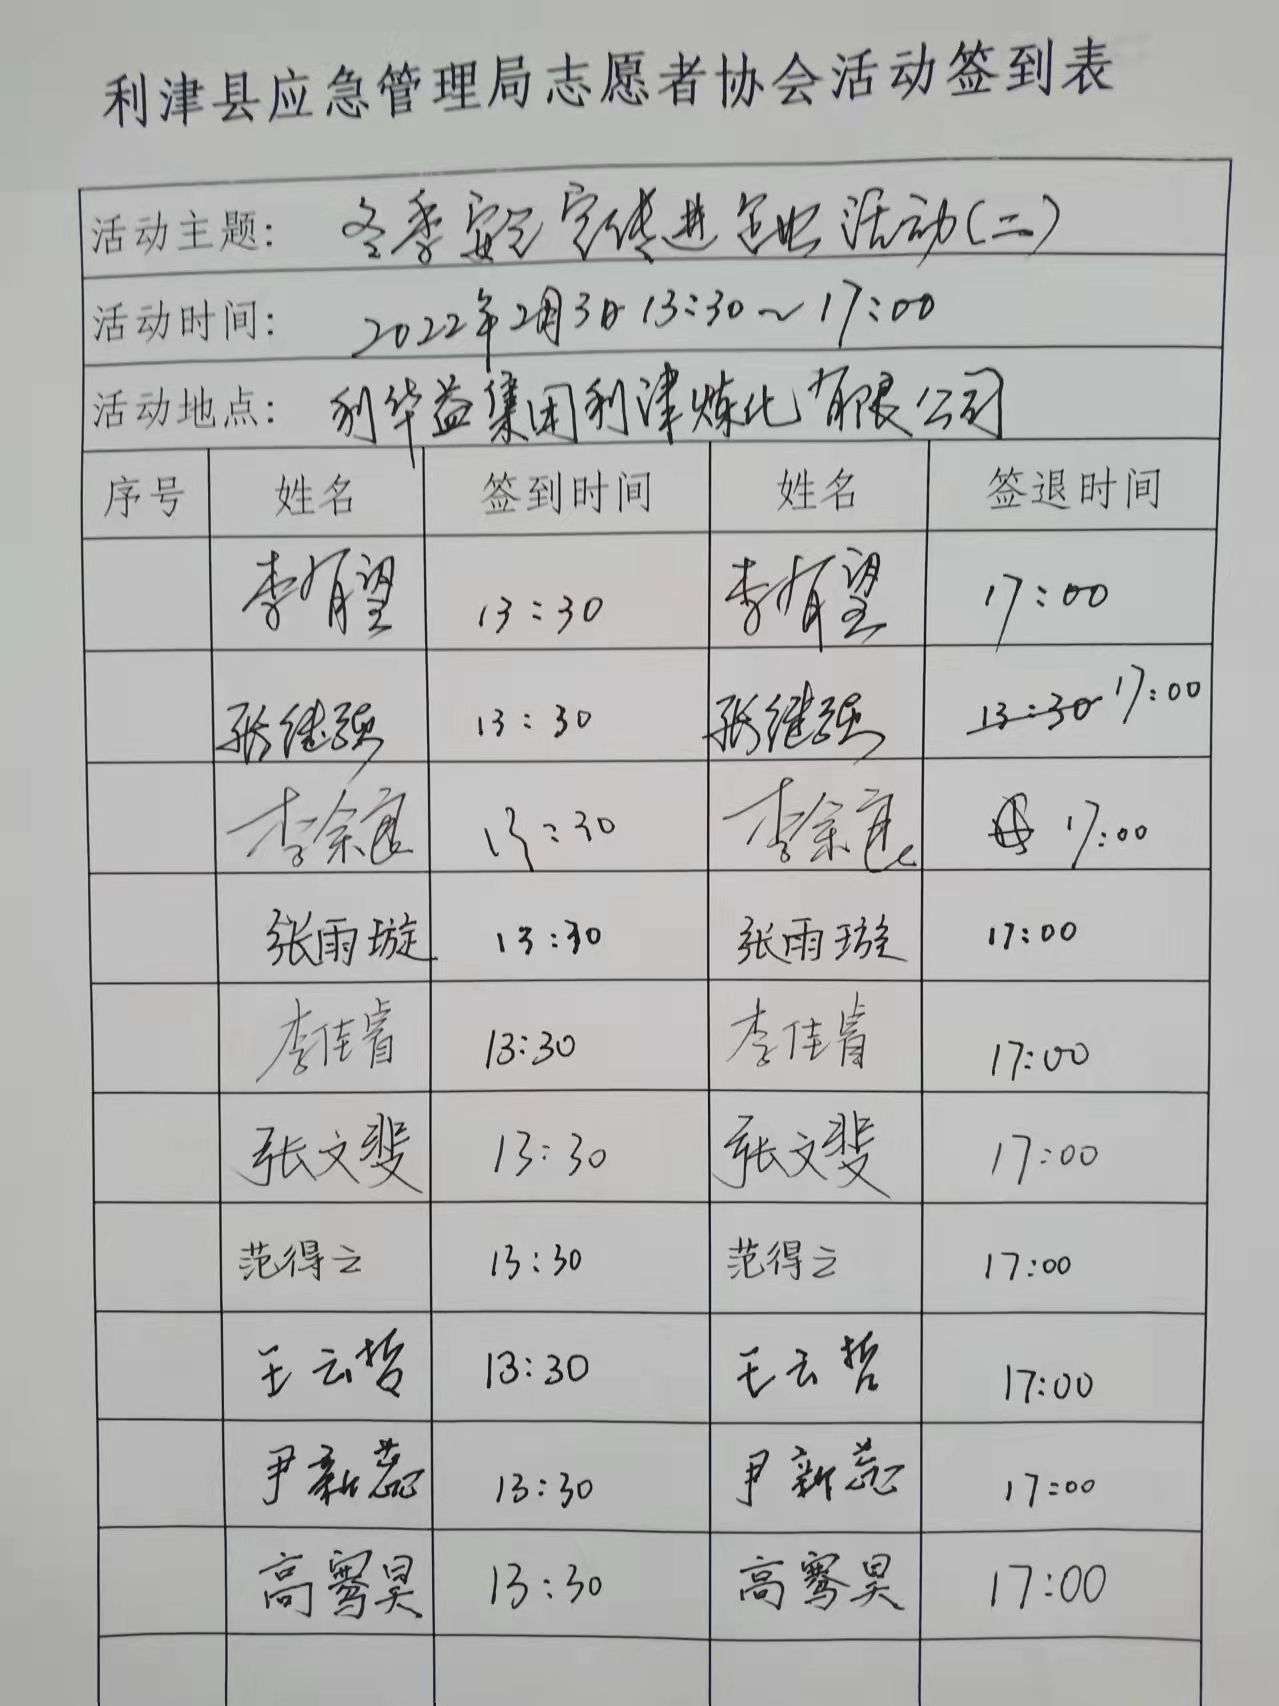 利津县应急管理局志愿者协会活动签到表
活动主题: 冬季安全宣传进企业活动(二)
活动时间: 2022年2月3日 13:30~17:00
活动地点: 利华益集团利津炼化有限公司
序号 姓名 签到时间 姓名 签退时间
李有望 13:30 李有望 17:00
张继强 13:30 张继强 13:30 17:00
李余良 13:30 李余良 17:00
张雨璇 13:30 张雨璇 17:00
李佳睿 13:30 李佳睿 17:00
张文斐 13:30 张文斐 17:00
范得立 13:30 范得立 17:00
王云哲 13:30 王云哲 17:00
尹新蕊 13:30 尹新蕊 17:00
高骞昊 13:30 高骞昊 17:00